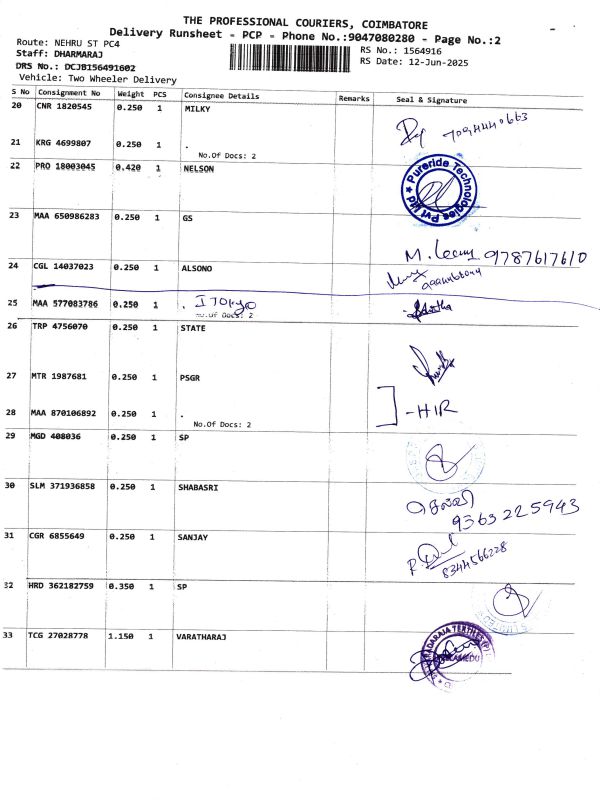 THE PROFESSIONAL COURIERS, COIMBATORE
Delivery Runsheet - PCP - Phone No.:9047080280 - Page No.:2
Route: NEHRU ST PC4
RS No.: 1564916
Staff: DHARMARAJ
RS Date: 12-Jun-2025
DRS No.: DCJB156491602
Vehicle: Two Wheeler Delivery
S No Consignment No Weight PCS Consignee Details Remarks Seal & Signature
20 CNR 1820545 0.250 1 MILKY
7094440663
21 KRG 4699807 0.250 1 .
No.Of Docs: 2
22 PRO 18003045 0.420 1 NELSON
Pureride Technologies Pvt Ltd
23 MAA 650986283 0.250 1 GS
M. 9787617610
24 CGL 14037023 0.250 1 ALSONO
25 MAA 577083786 0.250 1 .
No.Of Docs: 2
26 TRP 4756070 0.250 1 STATE
27 MTR 1987681 0.250 1 PSGR
28 MAA 870106892 0.250 1 .
No.Of Docs: 2
] - HIR
29 MGD 408036 0.250 1 SP
30 SLM 371936858 0.250 1 SHABASRI
செல்வி
9363225943
31 CGR 6855649 0.250 1 SANJAY
8344566228
32 HRD 362182759 0.350 1 SP
33 TCG 27028778 1.150 1 VARATHARAJ